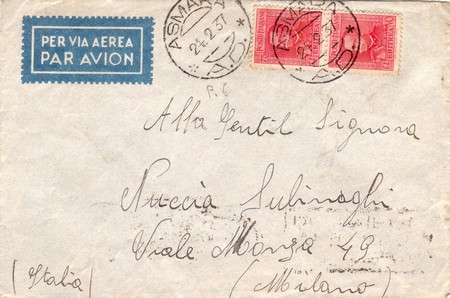 PER VIA AEREA
PAR AVION
ASMARA
24.2.37
A.D.
ASMARA
24.2.37
A.D.
R. 6
Alla Gentil Signora
Nuccia Subinaghi
Viale Monza 49
(Italia)
(Milano)